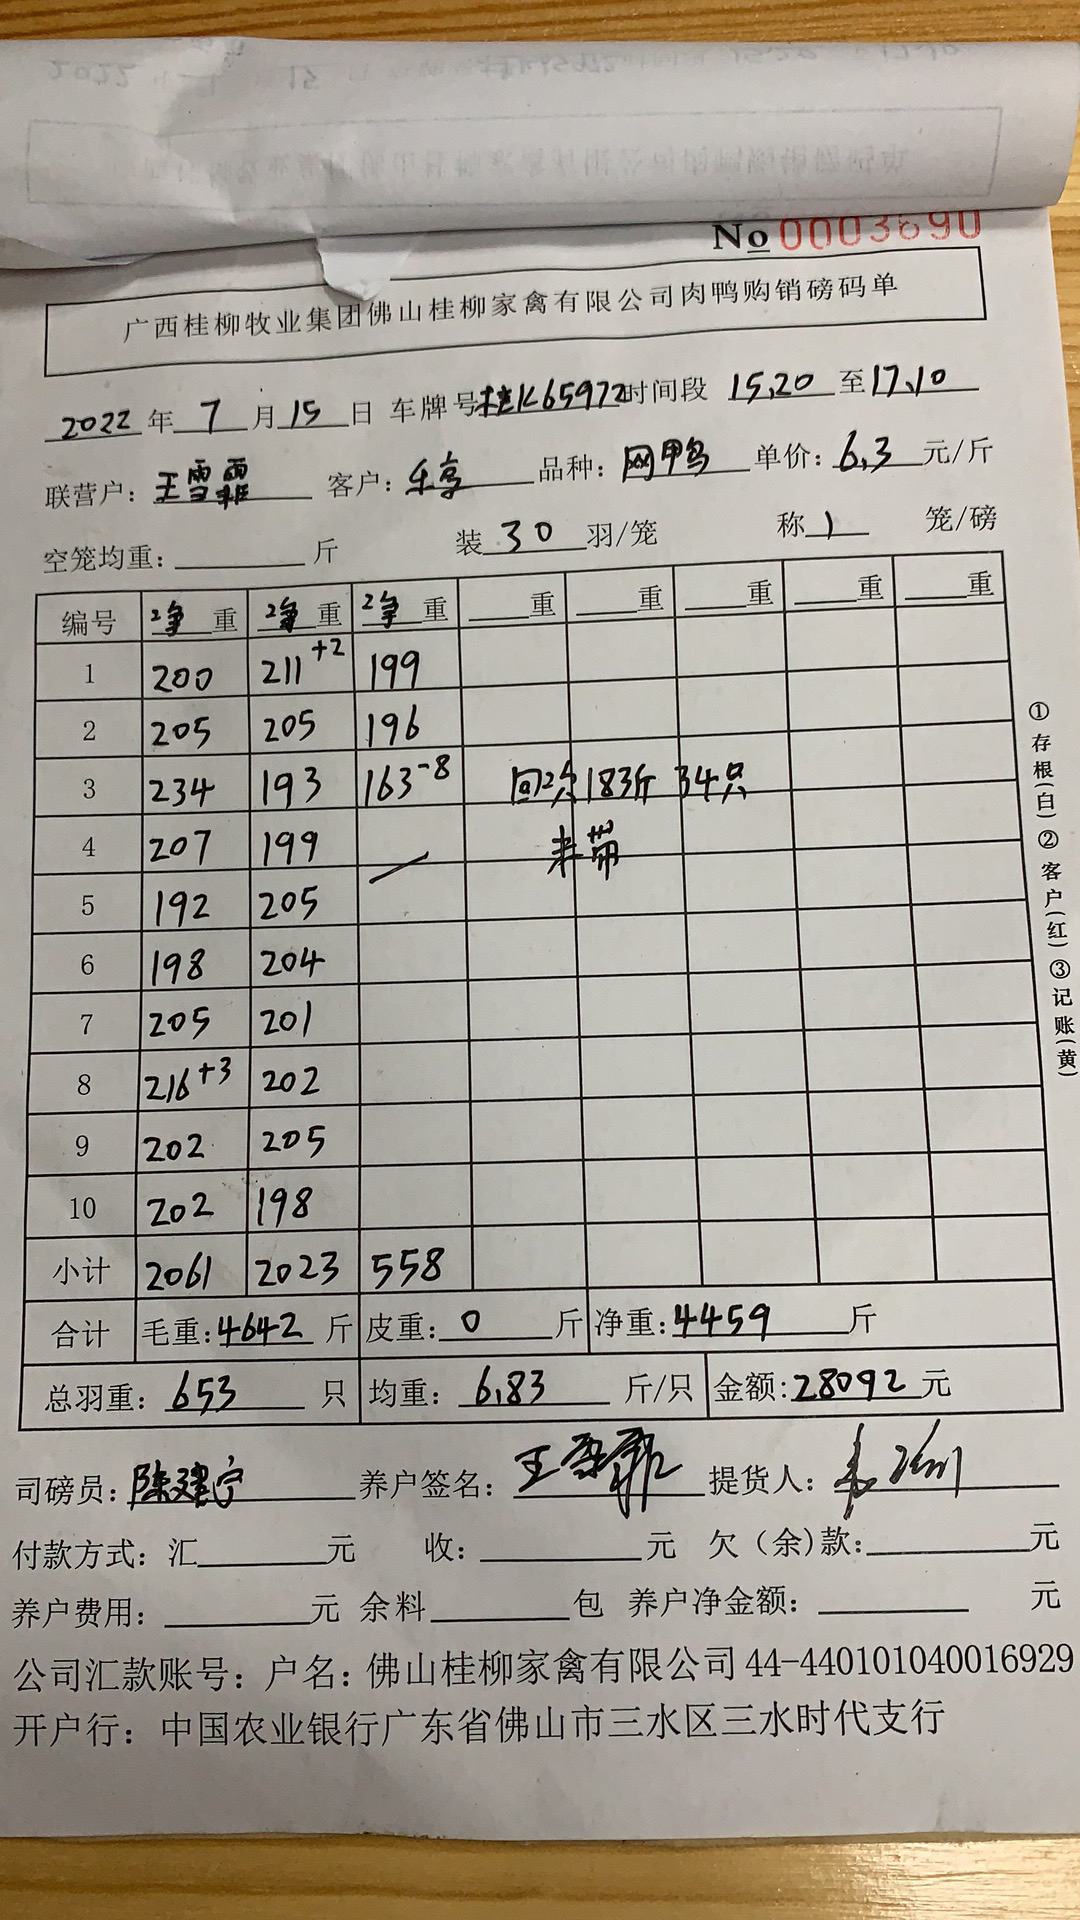 No 0003690
广西桂柳牧业集团佛山桂柳家禽有限公司肉鸭购销磅码单
2022年7月15日 车牌号桂K65972时间段 15,20至17,10
联营户：王雪霏 客户：乐享 品种：网鸭 单价：6,3元/斤
空笼均重： 斤 装30羽/笼 称1 笼/磅
编号 净重 净重 净重 重 重 重 重 重
1 200 211+2 199
2 205 205 196
3 234 193 163-8 回 183斤 34只
4 207 199
5 192 205
6 198 204
7 205 201
8 216+3 202
9 202 205
10 202 198
小计 2061 2023 558
合计 毛重：4642斤 皮重：0斤 净重：4459斤
总羽重：653只 均重：6,83斤/只 金额：28092元
司磅员：陈建宁 养户签名：王 提货人：
付款方式：汇 元 收： 元 欠（余）款： 元
养户费用： 元 余料 包 养户净金额： 元
公司汇款账号：户名：佛山桂柳家禽有限公司 44-440101040016929
开户行：中国农业银行广东省佛山市三水区三水时代支行
①存根（白）②客户（红）③记账（黄）